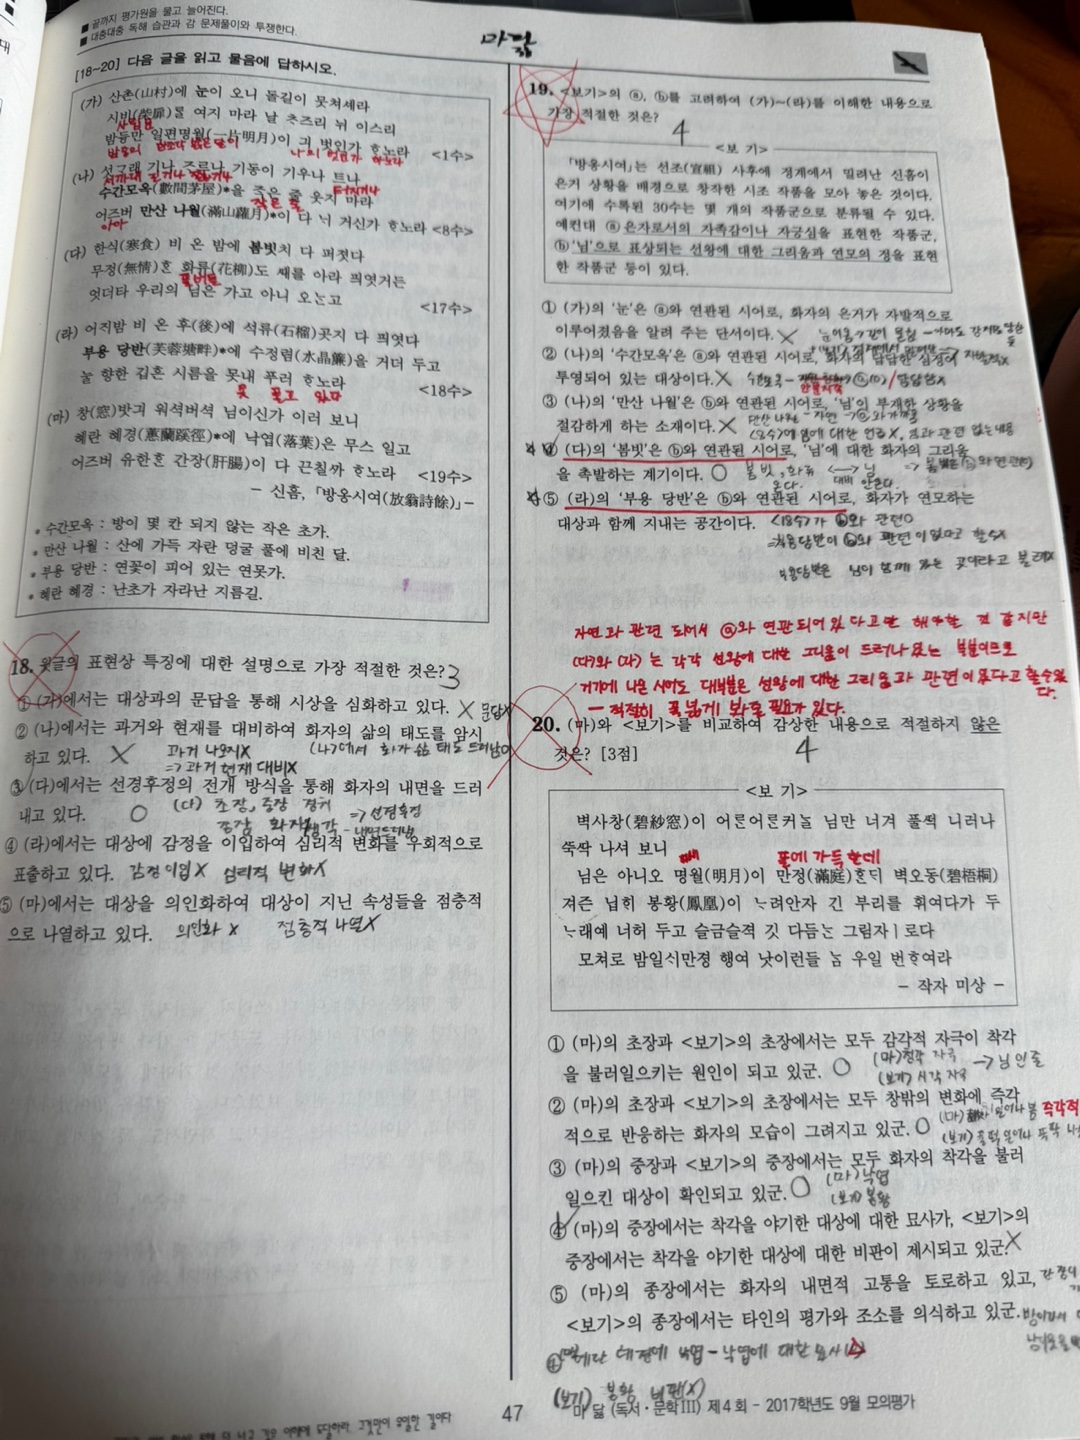 ■ 끝까지 평가원을 물고 늘어진다.
■ 대충대충 독해 습관과 감 문제풀이와 투쟁한다.
마닳
[18~20] 다음 글을 읽고 물음에 답하시오.
(가) 산촌(山村)에 눈이 오니 돌길이 뭇쳐셰라
시비(柴扉)를 여지 마라 날 ᄎᆞ즈리 뉘 이스리
밤듕만 일편명월(一片明月)이 긔 벗인가 ᄒᆞ노라 <1수>
(나) 섯그래 기나 ᄌᆞ르나 기동이 기우나 트나
수간모옥(數間茅屋)*을 죽은 줄 웃지 마라
어즈버 만산 나월(滿山蘿月)*이 다 닉 거신가 ᄒᆞ노라 <8수>
(다) 한식(寒食) 비 온 밤에 봄빗치 다 퍼졋다
무정(無情)ᄒᆞᆫ 화류(花柳)도 ᄯᅢ를 아라 픠엿거든
엇더타 우리의 님은 가고 아니 오ᄂᆞᆫ고 <17수>
(라) 어직밤 비 온 후(後)에 석류(石榴)곳지 다 픠엿다
부용 당반(芙蓉塘畔)*에 수정렴(水晶簾)을 거더 두고
눌 향한 깁흔 시름을 못내 푸러 ᄒᆞ노라 <18수>
못 풀고 있다
(마) 창(窓)밧긔 워셕버셕 님이신가 이러 보니
혜란 혜경(蕙蘭蹊徑)*에 낙엽(落葉)은 무스 일고
어즈버 유한ᄒᆞᆫ 간장(肝腸)이 다 끈칠까 ᄒᆞ노라 <19수>
- 신흠, 「방옹시여(放翁詩餘)」-
* 수간모옥 : 방이 몇 칸 되지 않는 작은 초가.
* 만산 나월 : 산에 가득 자란 덩굴 풀에 비친 달.
* 부용 당반 : 연꽃이 피어 있는 연못가.
* 혜란 혜경 : 난초가 자라난 지름길.
18. 윗글의 표현상 특징에 대한 설명으로 가장 적절한 것은? 3
① (가)에서는 대상과의 문답을 통해 시상을 심화하고 있다. X 문답X
② (나)에서는 과거와 현재를 대비하여 화자의 삶의 태도를 암시
하고 있다. X 과거 나오지X (나)에서 화자 삶 태도 드러남O
=> 과거 현재 대비X
③ (다)에서는 선경후정의 전개 방식을 통해 화자의 내면을 드러
내고 있다. O (다) 초장, 중장 경치 => 선경후정
종장 화자 생각 - 내면드러냄
④ (라)에서는 대상에 감정을 이입하여 심리적 변화를 우회적으로
표출하고 있다. 감정이입X 심리적 변화X
⑤ (마)에서는 대상을 의인화하여 대상이 지닌 속성들을 점층적
으로 나열하고 있다. 의인화 X 점층적 나열X
19. <보기>의 ⓐ, ⓑ를 고려하여 (가)~(라)를 이해한 내용으로
가장 적절한 것은?
4
<보 기>
「방옹시여」는 선조(宣祖) 사후에 정계에서 밀려난 신흠이
은거 상황을 배경으로 창작한 시조 작품을 모아 놓은 것이다.
여기에 수록된 30수는 몇 개의 작품군으로 분류될 수 있다.
예컨대 ⓐ은자로서의 자족감이나 자긍심을 표현한 작품군,
ⓑ'님'으로 표상되는 선왕에 대한 그리움과 연모의 정을 표현
한 작품군 등이 있다.
① (가)의 '눈'은 ⓐ와 연관된 시어로, 화자의 은거가 자발적으로
이루어졌음을 알려 주는 단서이다. X
② (나)의 '수간모옥'은 ⓐ와 연관된 시어로, 화자의 답답한 심경이
투영되어 있는 대상이다. X
③ (나)의 '만산 나월'은 ⓑ와 연관된 시어로, '님'이 부재한 상황을
절감하게 하는 소재이다. X
④ (다)의 '봄빗'은 ⓑ와 연관된 시어로, '님'에 대한 화자의 그리움
을 촉발하는 계기이다. O 봄빗, 화류 <-> 님
온다. 대비 안온다.
⑤ (라)의 '부용 당반'은 ⓑ와 연관된 시어로, 화자가 연모하는
대상과 함께 지내는 공간이다. <18수>가 ⓑ와 관련O
=> 부용당반이 ⓑ와 관련이 없다고 할수X
부용당반은 님이 함께 있는 곳이라고 볼 수X
자연과 관련 되어서 ⓐ와 연관되어있다고만 해야할 것 같지만
(다)와 (라)는 각각 선왕에 대한 그리움이 드러나있는 부분이므로
거기에 나온 시어도 대부분은 선왕에 대한 그리움과 관련이 있다고 할수있다.
- 적절히 폭넓게 봐줄 필요가 있다.
20. (마)와 <보기>를 비교하여 감상한 내용으로 적절하지 않은
것은? [3점] 4
<보 기>
벽사창(碧紗窓)이 어른어른커늘 님만 너겨 풀쩍 니러나
뚝딱 나셔 보니
뜰에 가득한데
님은 아니오 명월(明月)이 만정(滿庭)ᄒᆞᆫ듸 벽오동(碧梧桐)
져즌 닙희 봉황(鳳凰)이 ᄂᆞ려안자 긴 부리를 휘여다가 두
ᄂᆞ래예 너허 두고 슬금슬젹 깃 다듬ᄂᆞᆫ 그림자ㅣ로다
모쳐로 밤일시만졍 행여 낫이런들 ᄂᆞᆷ 우일 번ᄒᆞ여라
- 작자 미상 -
① (마)의 초장과 <보기>의 초장에서는 모두 감각적 자극이 착각
을 불러일으키는 원인이 되고 있군. O (마)청각 자극 -> 님인줄
(보기) 시각 자극
② (마)의 초장과 <보기>의 초장에서는 모두 창밖의 변화에 즉각
적으로 반응하는 화자의 모습이 그려지고 있군. O
즉각적
③ (마)의 중장과 <보기>의 중장에서는 모두 화자의 착각을 불러
일으킨 대상이 확인되고 있군. O (마) 낙엽
(보기) 봉황
④ (마)의 중장에서는 착각을 야기한 대상에 대한 묘사가, <보기>의
중장에서는 착각을 야기한 대상에 대한 비판이 제시되고 있군. X
⑤ (마)의 종장에서는 화자의 내면적 고통을 토로하고 있고,
<보기>의 종장에서는 타인의 평가와 조소를 의식하고 있군.
(보기) 봉황 비판(X)
47
마닳 (독서·문학III) 제4회 - 2017학년도 9월 모의평가